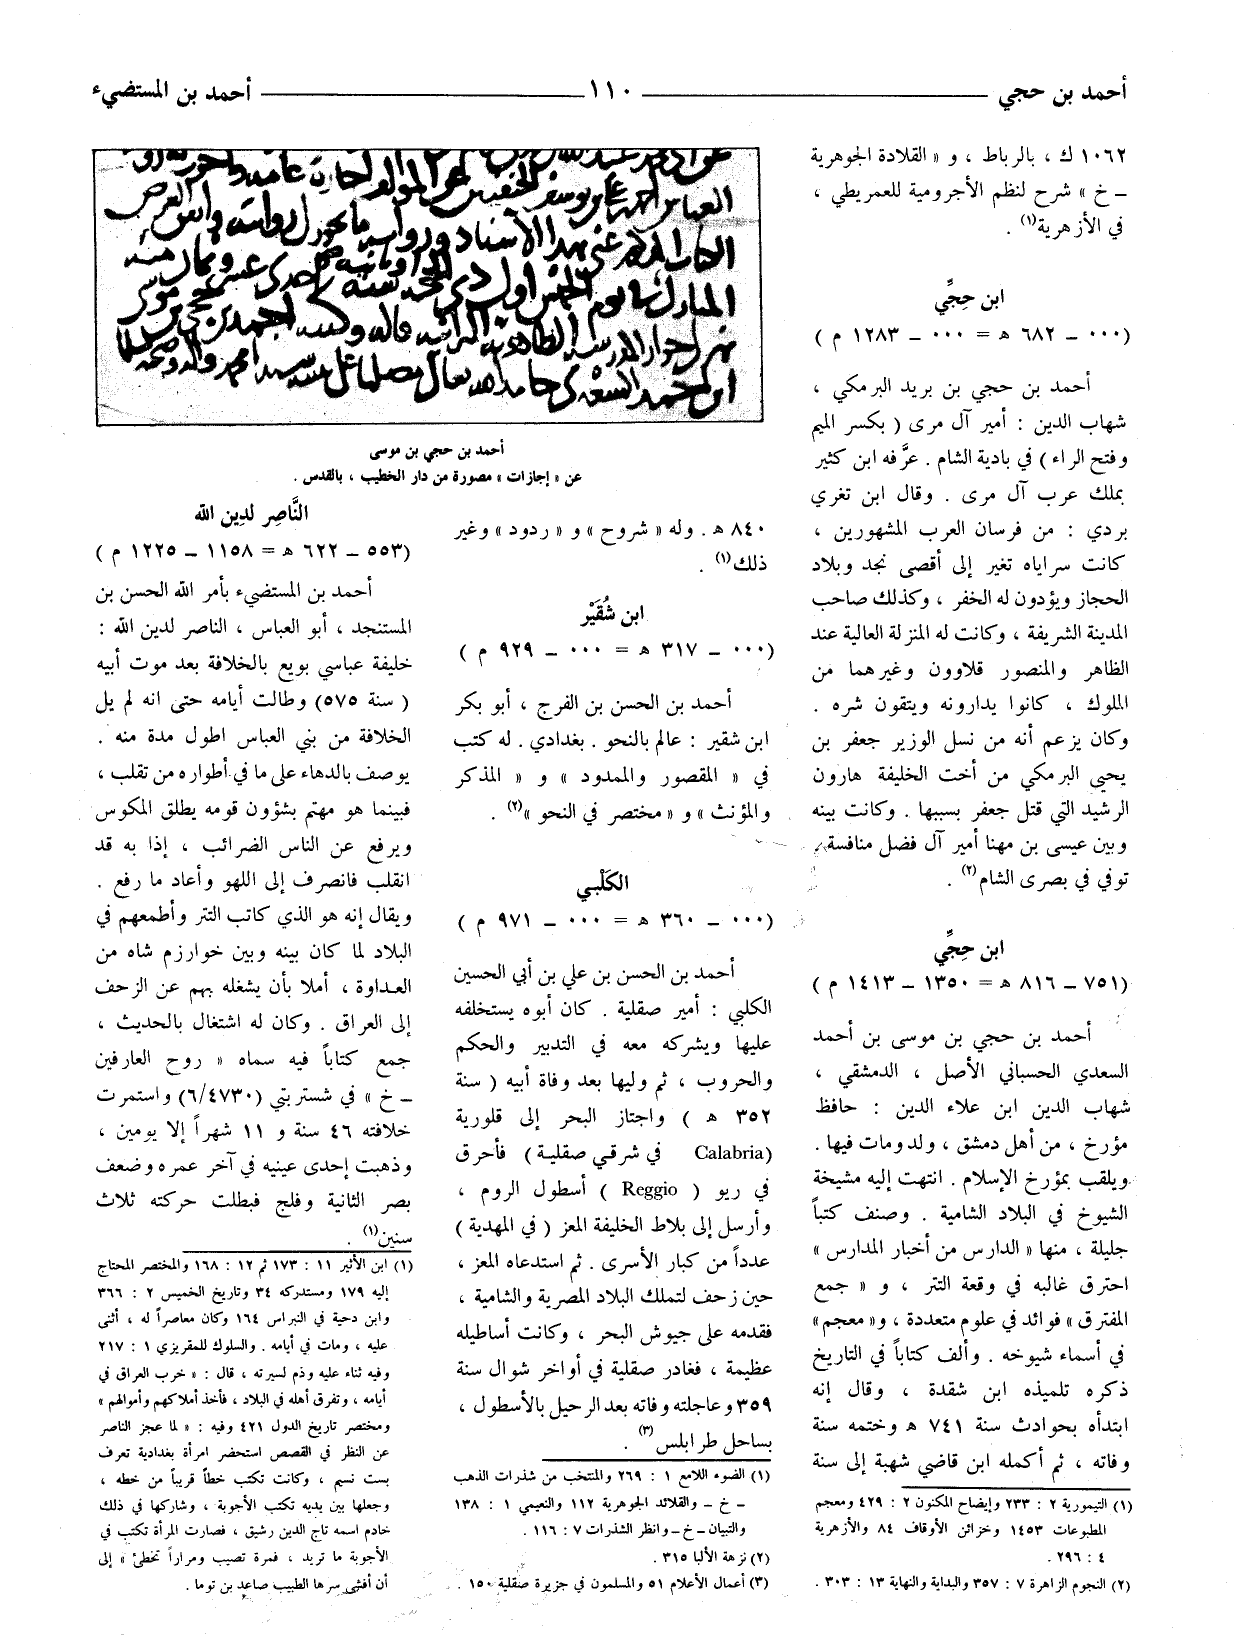 أحمد بن حجي ــــــ ١١٠ ــــــ أحمد بن المستضيء
١٠٦٢ ك ، بالرباط ، و « القلادة الجوهرية
ـ خ » شرح لنظم الأجرومية للعمريطي ،
في الأزهرية(١) .
ابن حِجِّي
(٠٠٠ ـ ٦٨٢ هـ = ٠٠٠ ـ ١٢٨٣ م )
أحمد بن حجي بن بريد البرمكي ،
شهاب الدين : أمير آل مرى ( بكسر الميم
وفتح الراء ) في بادية الشام . عرَّفه ابن كثير
بملك عرب آل مرى . وقال ابن تغري
بردي : من فرسان العرب المشهورين ،
كانت سراياه تغير إلى أقصى نجد وبلاد
الحجاز ويؤدون له الخفر ، وكذلك صاحب
المدينة الشريفة ، وكانت له المنزلة العالية عند
الظاهر والمنصور قلاوون وغيرهما من
الملوك ، كانوا يدارونه ويتقون شره .
وكان يزعم أنه من نسل الوزير جعفر بن
يحيى البرمكي من أخت الخليفة هارون
الرشيد التي قتل جعفر بسببها . وكانت بينه
وبين عيسى بن مهنا أمير آل فضل منافسة .
توفي في بصرى الشام(٢) .
ابن حِجِّي
(٧٥١ ـ ٨١٦ هـ = ١٣٥٠ ـ ١٤١٣ م )
أحمد بن حجي بن موسى بن أحمد
السعدي الحسباني الأصل ، الدمشقي ،
شهاب الدين ابن علاء الدين : حافظ
مؤرخ ، من أهل دمشق ، ولد ومات فيها .
ويلقب بمؤرخ الإسلام . انتهت إليه مشيخة
الشيوخ في البلاد الشامية . وصنف كتباً
جليلة ، منها « الدارس من أخبار المدارس »
احترق غالبه في وقعة التتر ، و « جمع
المفترق » فوائد في علوم متعددة ، و« معجم »
في أسماء شيوخه . وألف كتاباً في التاريخ
ذكره تلميذه ابن شقدة ، وقال إنه
ابتدأه بحوادث سنة ٧٤١ هـ وختمه سنة
وفاته ، ثم أكمله ابن قاضي شهبة إلى سنة
(١) التيمورية ٢ : ٢٣٣ وإيضاح المكنون ٢ : ٤٢٩ ومعجم
المطبوعات ١٤٥٣ وخزائن الأوقاف ٨٤ والأزهرية
٤ : ٢٩٦ .
(٢) النجوم الزاهرة ٧ : ٣٥٧ والبداية والنهاية ١٣ : ٣٠٣ .
أحمد بن حجي بن موسى
عن « إجازات » مصورة من دار الخطيب ، بالقدس .
٨٤٠ هـ . وله « شروح » و « ردود » وغير
ذلك(١) .
ابن شُقَيْر
(٠٠٠ ـ ٣١٧ هـ = ٠٠٠ ـ ٩٢٩ م )
أحمد بن الحسن بن الفرج ، أبو بكر
ابن شقير : عالم بالنحو . بغدادي . له كتب
في « المقصور والممدود » و « المذكر
والمؤنث » و « مختصر في النحو »(٢) .
الكَلْبي
(٠٠٠ ـ ٣٦٠ هـ = ٠٠٠ ـ ٩٧١ م )
أحمد بن الحسن بن علي بن أبي الحسين
الكلبي : أمير صقلية . كان أبوه يستخلفه
عليها ويشركه معه في التدبير والحكم
والحروب ، ثم وليها بعد وفاة أبيه ( سنة
٣٥٢ هـ ) واجتاز البحر إلى قلورية
(Calabria في شرقي صقلية ) فأحرق
في ريو ( Reggio ) أسطول الروم ،
وأرسل إلى بلاط الخليفة المعز ( في المهدية )
عدداً من كبار الأسرى . ثم استدعاه المعز ،
حين زحف لتملك البلاد المصرية والشامية ،
فقدمه على جيوش البحر ، وكانت أساطيله
عظيمة ، فغادر صقلية في أواخر شوال سنة
٣٥٩ وعاجلته وفاته بعد الرحيل بالأسطول ،
بساحل طرابلس(٣) .
(١) الضوء اللامع ١ : ٢٦٩ والمنتخب من شذرات الذهب
- خ - والقلائد الجوهرية ١١٢ والنعيمي ١ : ١٣٨
والتبيان - خ - وانظر الشذرات ٧ : ١١٦ .
(٢) نزهة الألبا ٣١٥ .
(٣) أعمال الأعلام ٥١ والمسلمون في جزيرة صقلية ١٥٠ .
النَّاصِر لدِين الله
(٥٥٣ ـ ٦٢٢ هـ = ١١٥٨ ـ ١٢٢٥ م )
أحمد بن المستضيء بأمر الله الحسن بن
المستنجد ، أبو العباس ، الناصر لدين الله :
خليفة عباسي بويع بالخلافة بعد موت أبيه
( سنة ٥٧٥) وطالت أيامه حتى انه لم يل
الخلافة من بني العباس اطول مدة منه .
يوصف بالدهاء على ما في أطواره من تقلب ،
فبينما هو مهتم بشؤون قومه يطلق المكوس
ويرفع عن الناس الضرائب ، إذا به قد
انقلب فانصرف إلى اللهو وأعاد ما رفع .
ويقال إنه هو الذي كاتب التتر وأطمعهم في
البلاد لما كان بينه وبين خوارزم شاه من
العداوة ، أملا بأن يشغله بهم عن الزحف
إلى العراق . وكان له اشتغال بالحديث ،
جمع كتاباً فيه سماه « روح العارفين
ـ خ » في شستربتي (٦/٤٧٣٠) واستمرت
خلافته ٤٦ سنة و ١١ شهراً إلا يومين ،
وذهبت إحدى عينيه في آخر عمره وضعف
بصر الثانية وفلج فبطلت حركته ثلاث
سنين(١) .
(١) ابن الأثير ١١ : ١٧٣ ثم ١٢ : ١٦٨ والمختصر المحتاج
إليه ١٧٩ ومستدركه ٣٤ وتاريخ الخميس ٢ : ٣٦٦
وابن دحية في النبراس ١٦٤ وكان معاصراً له ، أثنى
عليه ، ومات في أيامه . والسلوك للمقريزي ١ : ٢١٧
وفيه ثناء عليه وذم لسيرته ، قال : « خرب العراق في
أيامه ، وتفرق أهله في البلاد ، فأخذ أملاكهم وأموالهم »
ومختصر تاريخ الدول ٤٢١ وفيه : « لما عجز الناصر
عن النظر في القصص استحضر امرأة بغدادية تعرف
بست نسيم ، وكانت تكتب خطاً قريباً من خطه ،
وجعلها بين يديه تكتب الأجوبة ، وشاركها في ذلك
خادم اسمه تاج الدين رشيق ، فصارت المرأة تكتب في
الأجوبة ما تريد ، فمرة تصيب ومراراً تخطئ » إلى
أن أفشى سرها الطبيب صاعد بن توما .